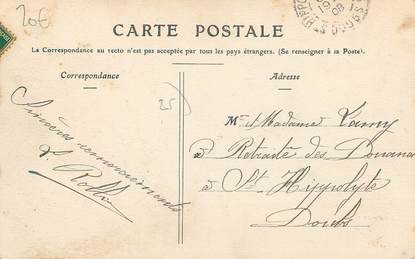 20€
CARTE POSTALE
La Correspondance au recto n'est pas acceptée par tous les pays étrangers. (Se renseigner à sa Poste).
Correspondance
Adresse
25
Sincères remerciements
Mr et Madame Lamy
Retraité des Douanes
à St Hippolyte
Doubs